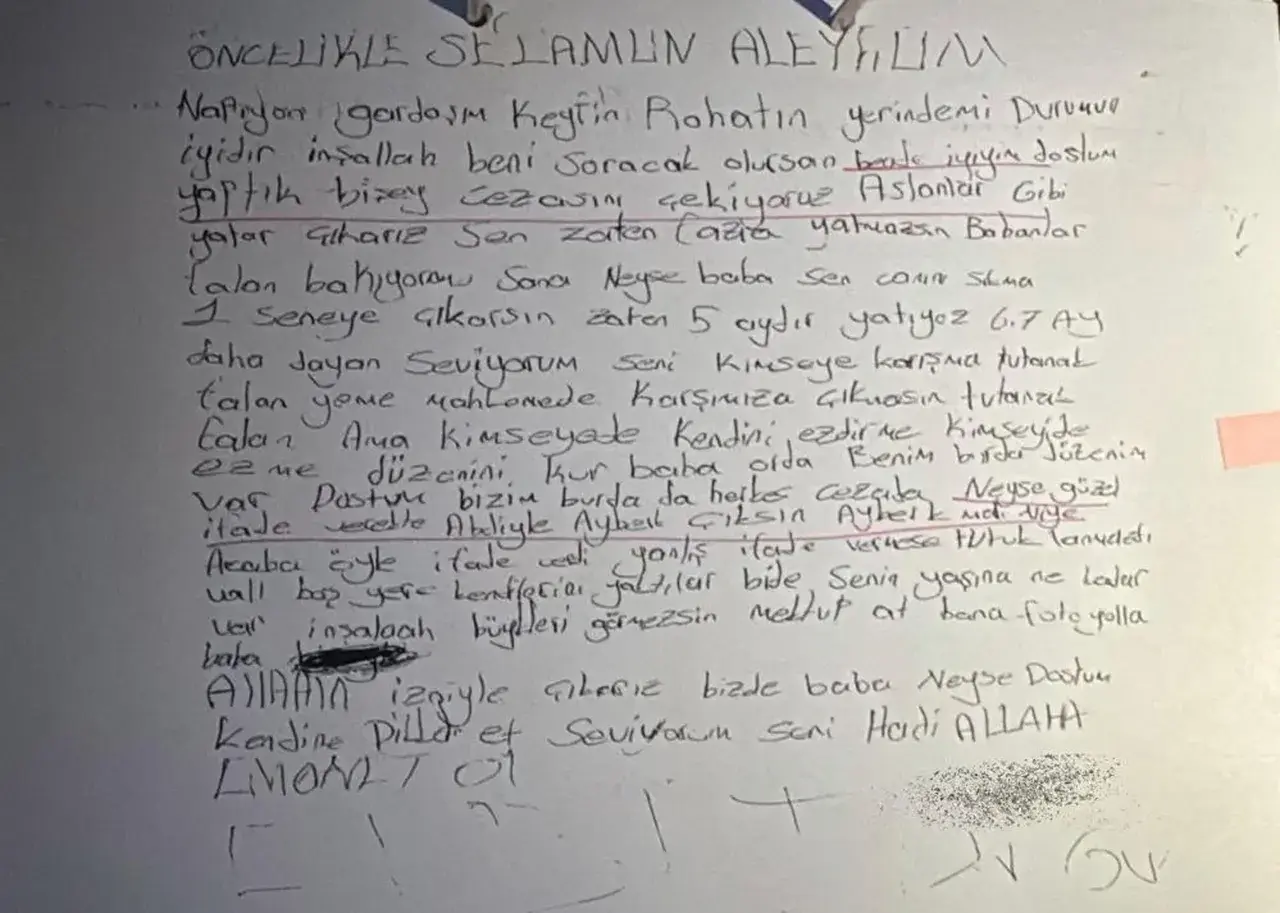 ÖNCELİKLE SELAMUN ALEYKUM
Napıyon gardaşım Keyfin Rohatın yerindemi Durumun
iyidir inşallah beni soracak olursan bende iyiyim dostum
yaptık bizey cezasını çekiyoruz Aslanlar Gibi
yatar çıkarız Sen zaten fazla yatmazsın Babanlar
falan bakıyorau Sana Neyse baba sen canın sıkma
1 Seneye çıkarsın zaten 5 aydır yatıyoz 6.7 AY
daha dayan Seviyorum seni Kimseye karışma tutanak
falan yeme mahkemede Karşımıza çıkmasın tutanak
falan Ama kimseyede Kendini ezdirme kimseyide
ezme düzenini kur baba orda Benim burda düzenim
var Dostum bizim burda da herkes cezada Neyse güzel
ifade verdik Abdiyle Ayberk Çıksın Ayberk niye
Acaba öyle ifade verdi yanlış ifade vermese tutuk
vall boş yere yattılar bide Senin yaşına ne kadar
var inşalaah büyükleri görmezsin mektup at bana foto yolla
baba
Allahın izniyle çıkarız bizde baba Neyse Dostum
Kendine Dikkat et Seviyorum seni Hadi ALLAHA
EMONET Ol